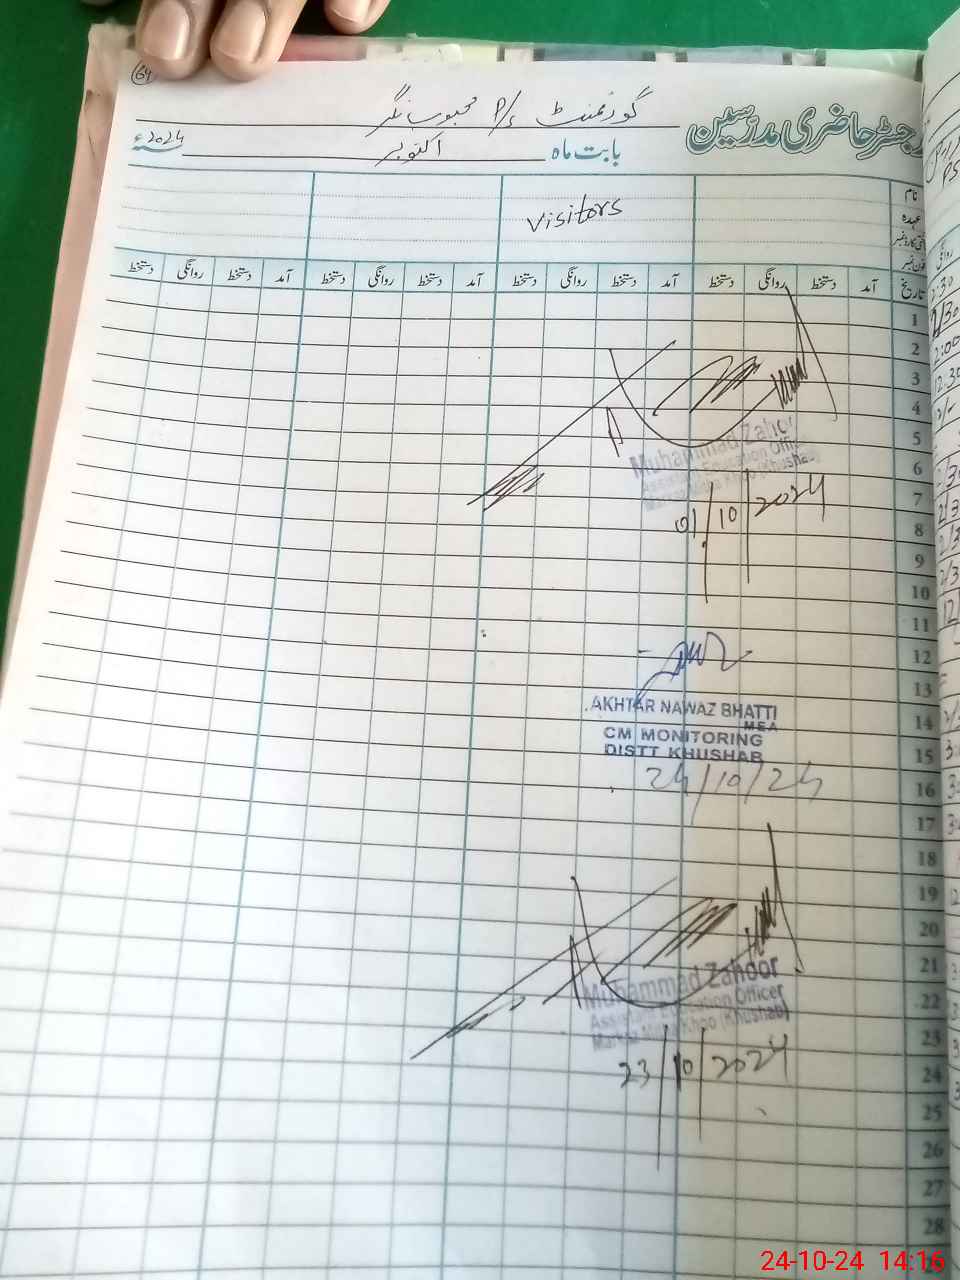 64
رجسٹر حاضری مدرسین گورنمنٹ P/S محبوب نگر
بابت ماہ اکتوبر 2024ء
نام
عہدہ
Visitors
تاریخ آمد دستخط روانگی دستخط آمد دستخط روانگی دستخط آمد دستخط روانگی دستخط آمد دستخط روانگی دستخط
1
2
3
4
5
6
7
8
9
10
11
12
13
14
15
16
17
18
19
20
21
22
23
24
25
26
27
28
Muhammad Zahoor
Assistant Education Officer
Markaz Mitha Khoo (Khushab)
01/10/2024
AKHTAR NAWAZ BHATTI
MEA
CM MONITORING
DISTT KHUSHAB
24/10/24
Muhammad Zahoor
Assistant Education Officer
Markaz Mitha Khoo (Khushab)
23/10/2024
24-10-24 14:16